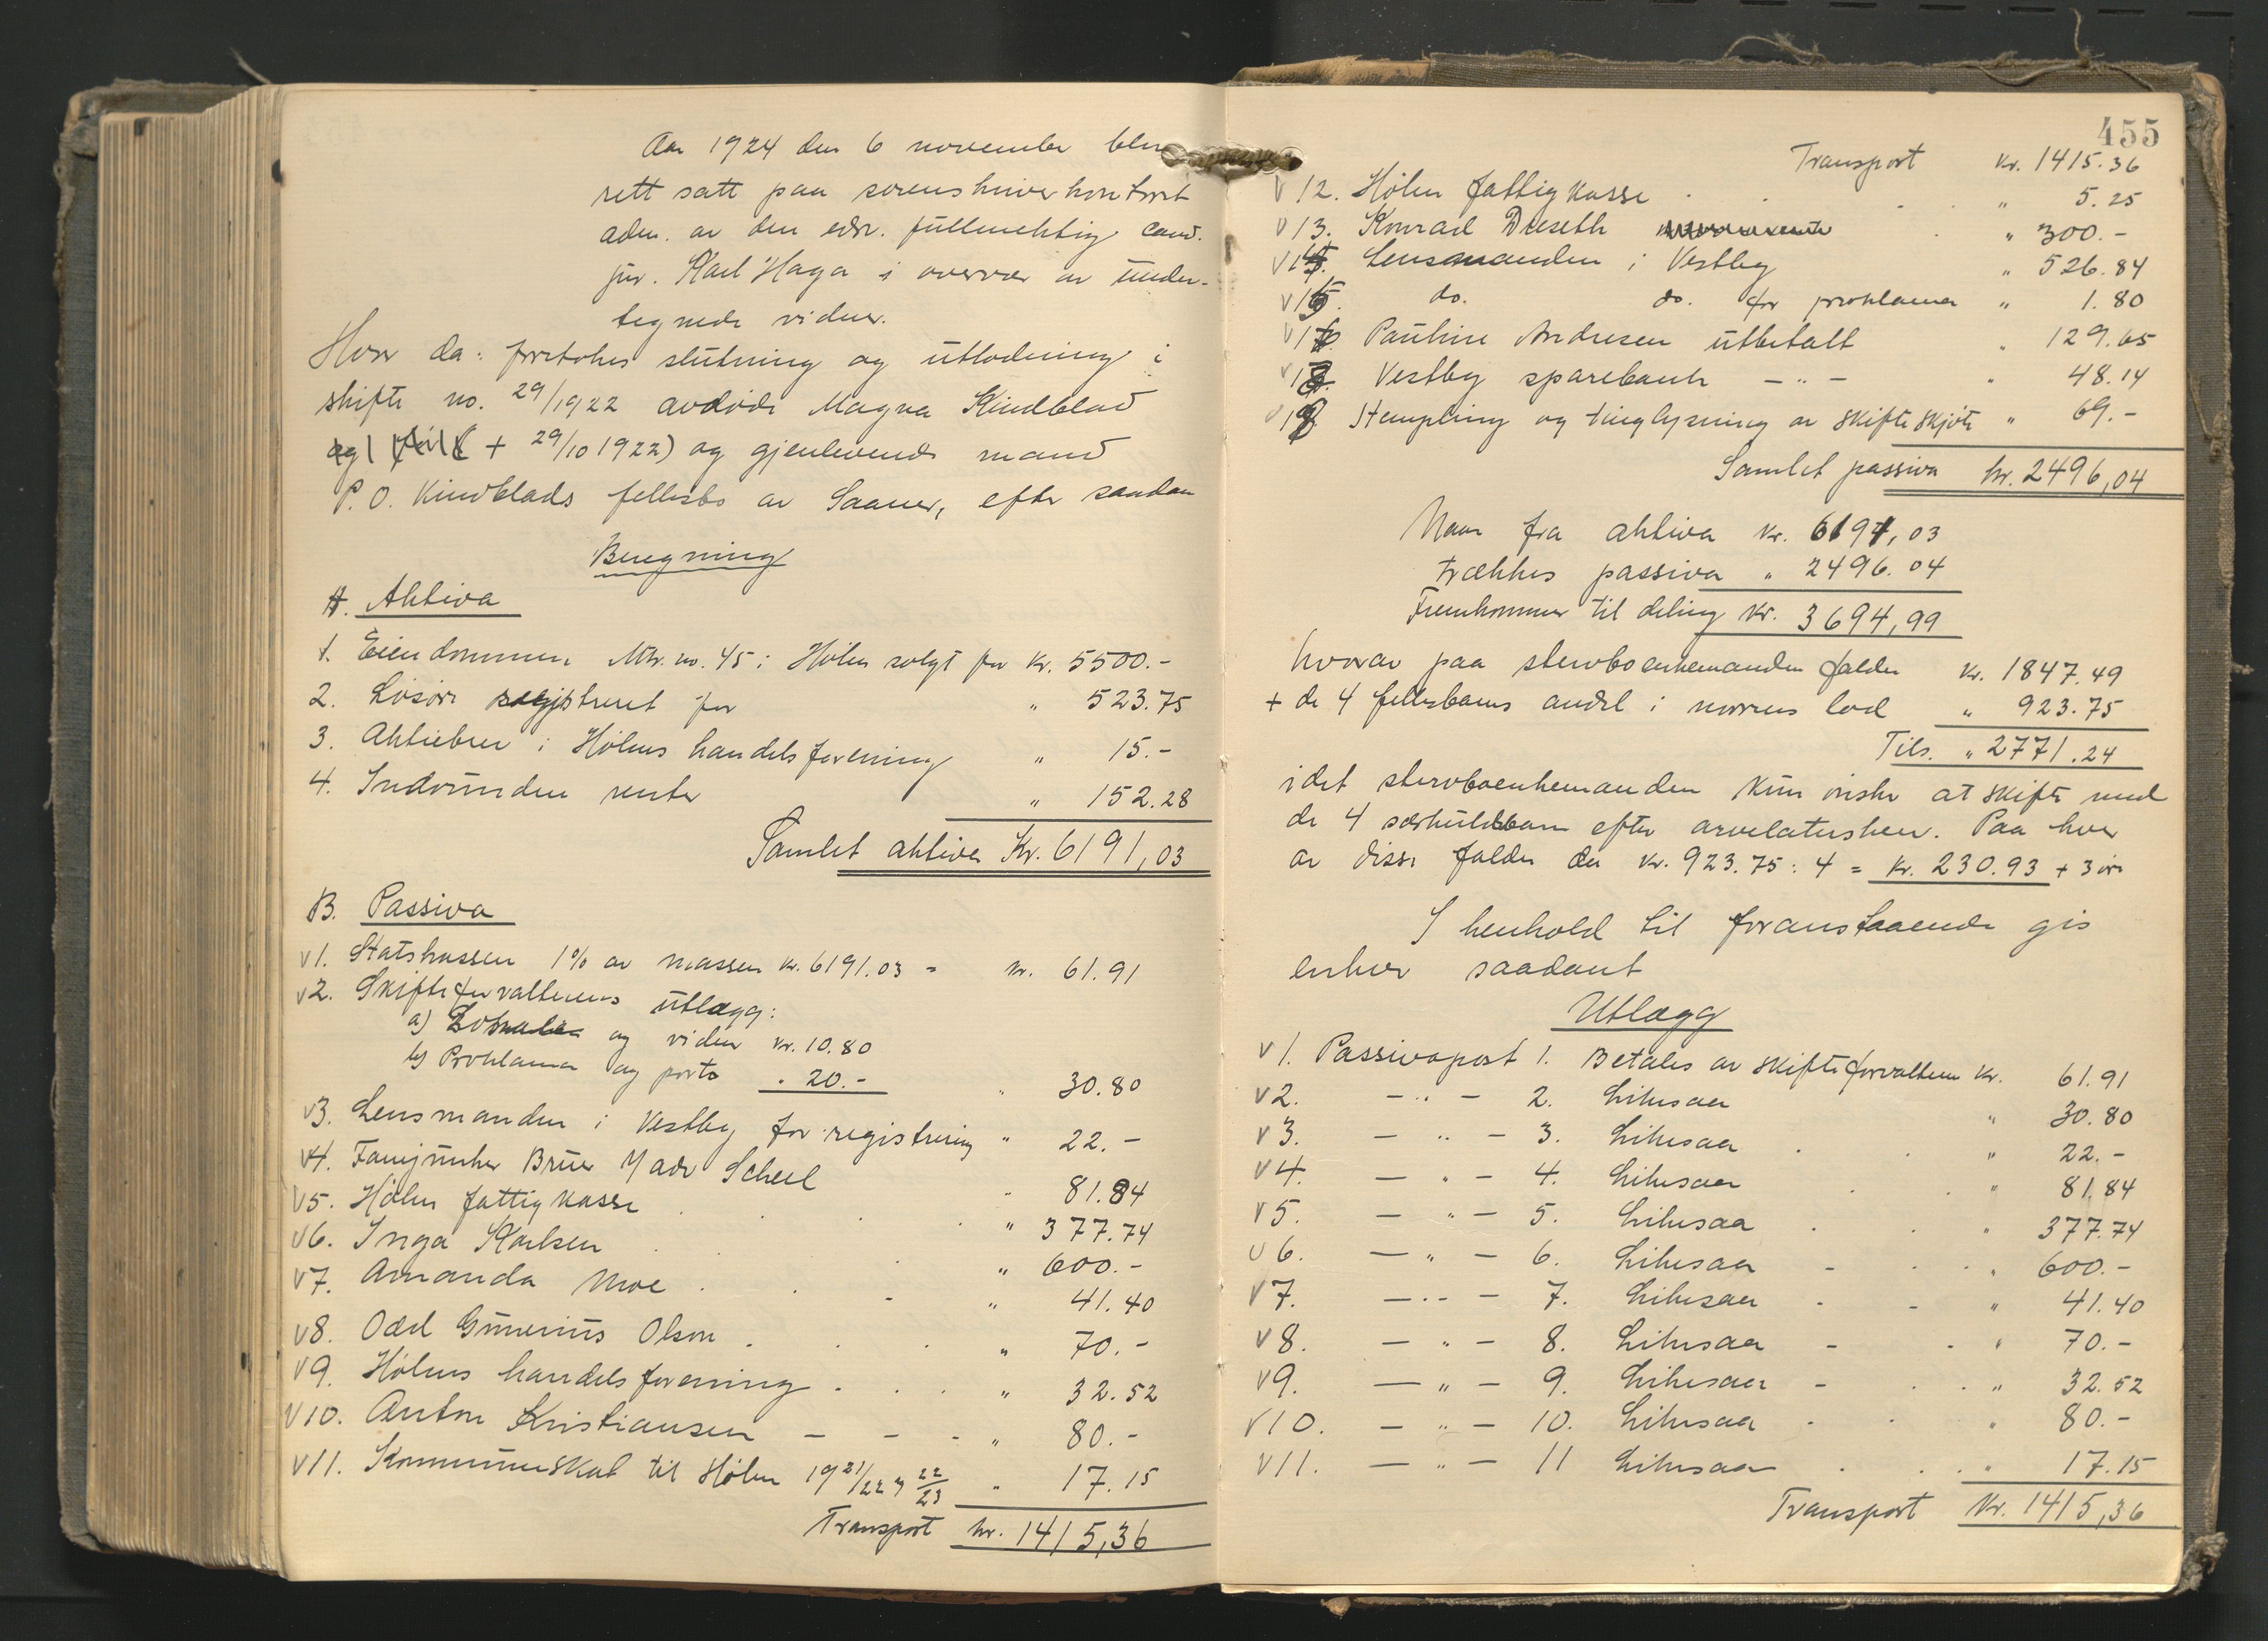 Aar 1924 den 6 november blev
rett satt paa sorenskriverkontoret
adm. av den edsv. fullmektig cand.
jur. Karl Haga i overvær av under-
tegnede vidner.
Hvor da: foretokes slutning og utlodning i
skifte no. 29/1922 avdøde Magna Kindblad
+ 29/10 1922) og gjenlevende mand
P. O. Kindblads fellesbo av Saaner, efter saadan
Beregning
A. Aktiva
1. Eiendommen Mtr. no. 45 i Hølen solgt for Kr. 5500.-
2. Løsøre registreret for " 523.75
3. Aktiebrev i Hølens handelsforening " 15.-
4. Indvundne renter " 152.28
Samlet aktiva Kr. 6191,03
B. Passiva
V1. Statskassen 1% av massen kr. 6191.03 = kr. 61.91
V2. Skifteforvalterens utlægg:
a) og vidner kr. 10.80
b) Proklama og porto " 20.- " 30.80
V3. Lensmanden i Vestby for registrering " 22.-
V4. Fanejunker Bruer Scheel " 81.84
V5. Hølen fattigkasse . . . " 377.74
V6. Inga Karlsen . . " 600.-
V7. Amanda Moe . . - " 41.40
V8. Odd Gunerius Olsen . . . " 70.-
V9. Hølens handelsforening . . . " 32.52
V10. Anton Kristiansen - - - " 80.-
V11. Kommuneskat til Hølen 1921/22 og 22/23 " 17.15
Transport kr. 1415,36
455
Transport Kr. 1415.36
V12. Hølen fattigkasse . . . " 5.25
V13. Konrad Dieseth . " 300.-
V14. Lensmanden i Vestby " 526.84
V15. do. do. for proklama " 1.80
V16 Pauline Andresen utbetalt " 129.65
V17. Vestby sparebank - " - " 48.14
V18 Stempling og tinglysning av skifteskjøte " 69.-
Samlet passiva kr. 2496,04
Naar fra aktiva kr. 6191,03
trækkes passiva " 2496.04
Fremkommer til deling kr. 3694,99
hvorav paa stervboenkemanden falder kr. 1847.49
+ de 4 fellesbarns andel i morens lod " 923.75
Tils. " 2771.24
idet stervboenkemanden kun ønsker at skifte med
de 4 særkuldsbarn efter arveladersken. Paa hver
av disse falder da kr. 923.75 : 4 = kr. 230.93 + 3 øre
I henhold til foranstaaende gis
enhver saadant
Utlægg
V1. Passivapost 1. Betales av skifteforvalteren kr. 61.91
V2. - " - 2. Likesaa " 30.80
V3. - " - 3. Likesaa . . " 22.-
V4. - " - 4. Likesaa . . " 81.84
V5. - " - 5. Likesaa . . " 377.74
V6. - " - 6. Likesaa - . . " 600.-
V7. - " - 7. Likesaa - - " 41.40
V8. - " - 8. Likesaa - - " 70.-
V9. - " - 9. Likesaa - . . " 32.52
V10. - " - 10. Likesaa . . " 80.-
V11. - " - 11 Likesaa . . . " 17.15
Transport Kr. 1415,36